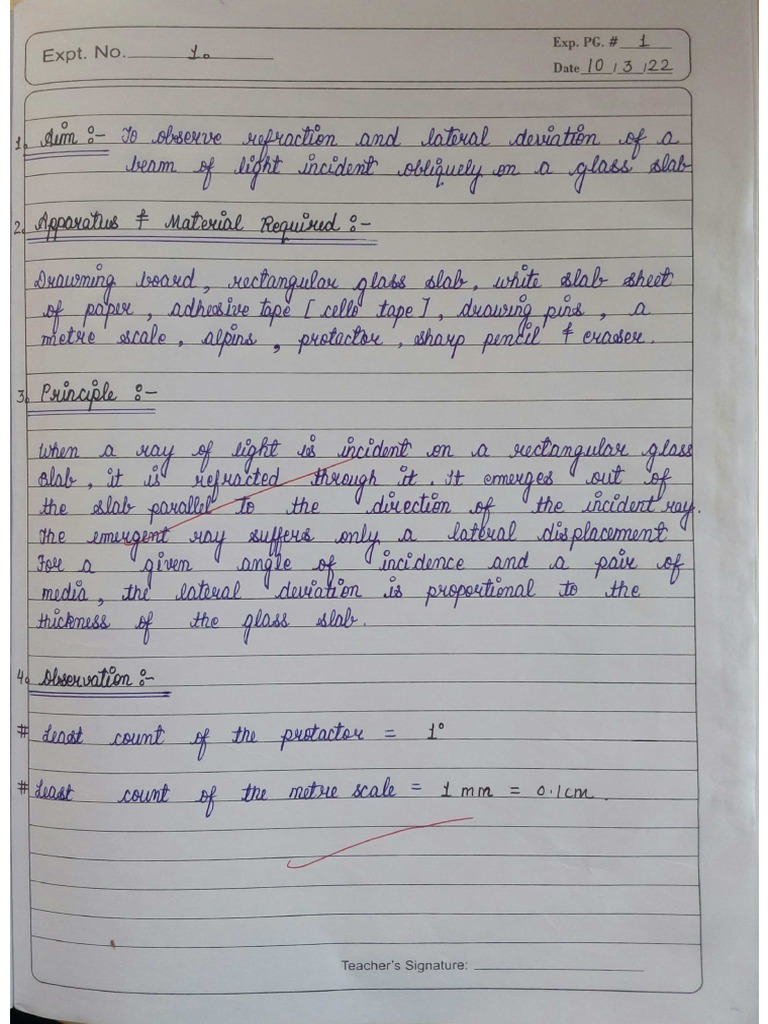 Expt. No. 1.
Exp. PG. # 1
Date 10 / 3 / 22
1. Aim :- To observe refraction and lateral deviation of a
beam of light incident obliquely on a glass slab
2. Apparatus & Material Required :-
Drawning board, rectangular glass slab, white slab sheet
of paper, adhesive tape [cello tape], drawing pins, a
metre scale, alpins, protactor, sharp pencil & eraser.
3. Principle :-
When a ray of light is incident on a rectangular glass
slab, it is refracted through it. It emerges out of
the slab parallel to the direction of the incident ray.
The emergent ray suffers only a lateral displacement
For a given angle of incidence and a pair of
media, the lateral deviation is proportional to the
thickness of the glass slab.
4. Observation :-
# Least count of the protactor = 1°
# Least count of the metre scale = 1 mm = 0.1cm.
Teacher's Signature: